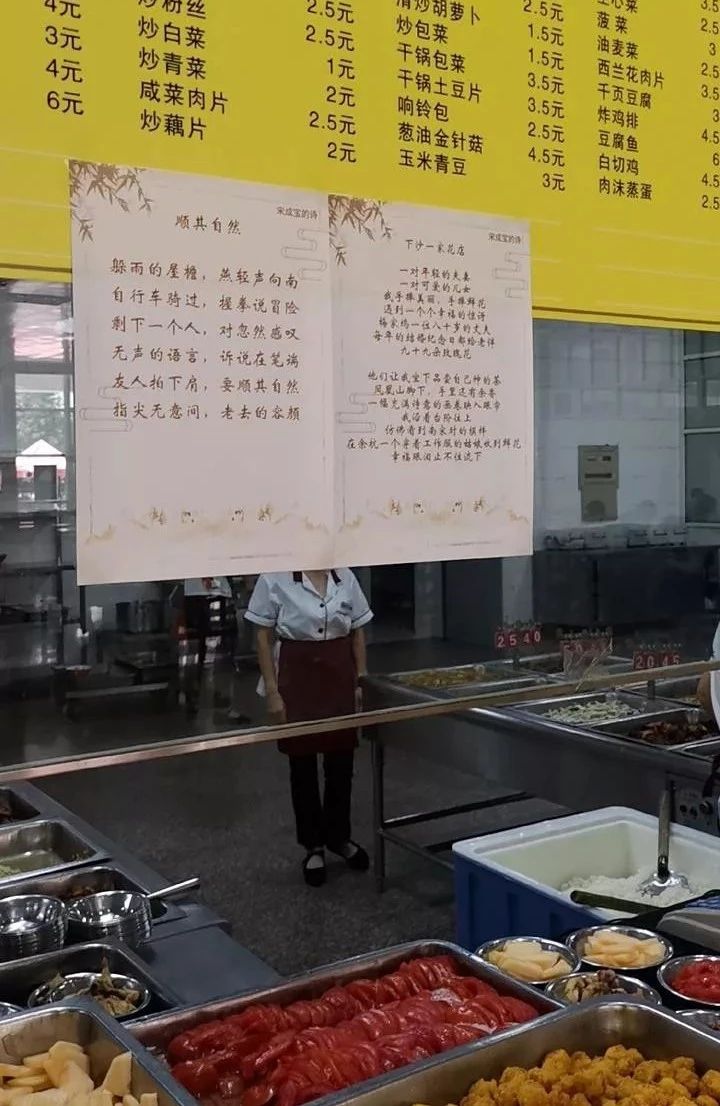 4元
3元
4元
6元
炒粉丝
炒白菜
炒青菜
咸菜肉片
炒藕片
2.5元
2.5元
1元
2元
2.5元
2元
清炒胡萝卜
炒包菜
干锅包菜
干锅土豆片
响铃包
葱油金针菇
玉米青豆
2.5元
1.5元
1.5元
3.5元
3.5元
2.5元
4.5元
3元
菠菜
油麦菜
西兰花肉片
千页豆腐
炸鸡排
豆腐鱼
白切鸡
肉沫蒸蛋
宋成宝的诗
顺其自然
躲雨的屋檐，燕轻声向南
自行车骑过，握拳说冒险
剩下一个人，对忽然感叹
无声的语言，诉说在笔端
友人拍下肩，要顺其自然
指尖无意间，老去的容颜
宋成宝的诗
下沙一家花店
一对年轻的夫妻
一对可爱的儿女
我手捧美丽，手捧鲜花
遇到一个个幸福的惊讶
杨家坞一位八十岁的丈夫
每年的结婚纪念日都给老伴
九十九朵玫瑰花
他们让我坐下品尝自己种的茶
凤凰山脚下，手里还有余香
一幅充满诗意的画卷映入眼帘
我沿着台阶往上
仿佛看到南宋时的模样
在余杭一个穿着工作服的姑娘收到鲜花
幸福眼泪止不住流下
2540
2045